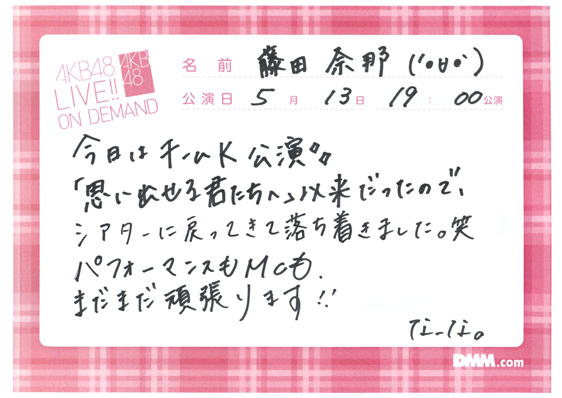 AKB48
LIVE!!
ON DEMAND
AKB
48
名前 藤田奈那 ('•ㅂ•')
公演日 5月13日 19:00公演
今日はチームK公演〃
「思い出せる君たちへ」以来だったので、
シアターに戻ってきて落ち着きました。笑
パフォーマンスもMCも、
まだまだ頑張ります!!
なーな。
DMM.com